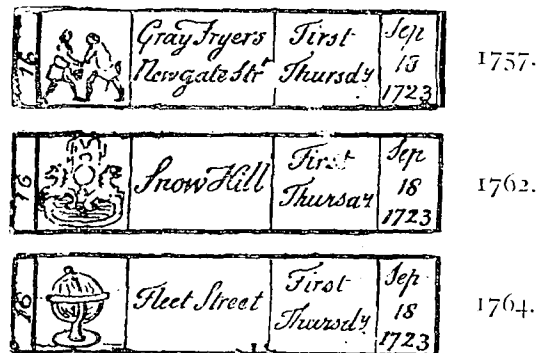 16 Gray Fryers Newgate Strt First Thursdy Sep 18 1723 1757.
16 Snow Hill First Thursay Sep 18 1723 1762.
16 Fleet Street First Thursdy Sep 18 1723 1764.